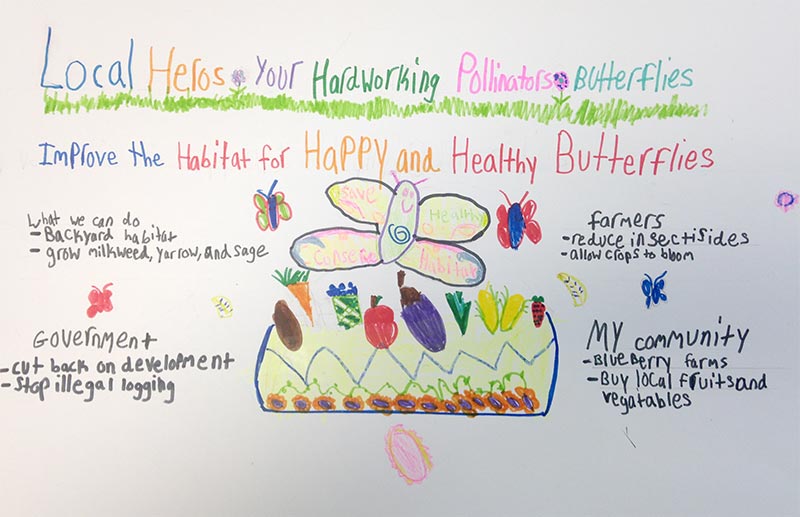 Local Heros Your Hardworking Pollinators Butterflies
Improve the Habitat for Happy and Healthy Butterflies
What we can do
- Backyard habitat
- grow milkweed, yarrow, and sage
Save
Healthy
Conserve
Habitat
farmers
- reduce insectisides
- allow crops to bloom
Government
- cut back on development
- Stop illegal logging
My community
- Blueberry farms
- Buy local fruits and
vegatables